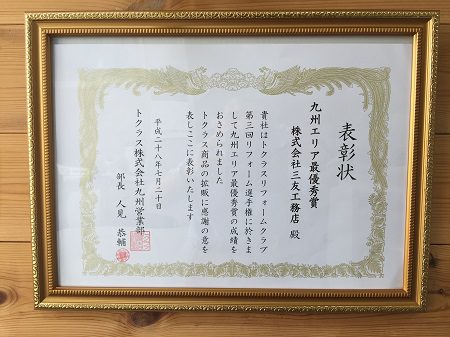 表彰状
九州エリア最優秀賞
株式会社三友工務店 殿
貴社はトクラスリフォームクラブ
第三回リフォーム選手権に於きま
して九州エリア最優秀賞の成績を
おさめられました
トクラス商品の拡販に感謝の意を
表しここに表彰いたします
平成二十八年七月二十日
トクラス株式会社九州営業部
部長 人見 恭輔